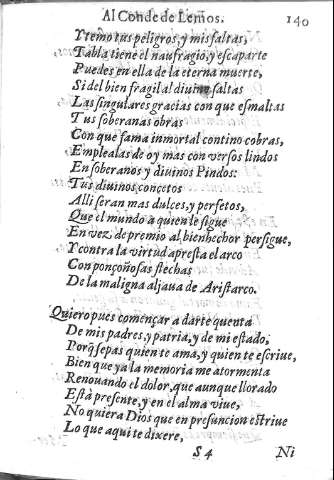 Al Conde de Lemos. 140
Y temo tus peligros, y mis faltas,
Tabla tiene el naufragio, y escaparte
Puedes en ella de la eterna muerte,
Si del bien fragil al diuino saltas
Las singulares gracias con que esmaltas
Tus soberanas obras
Con que fama inmortal contino cobras,
Emplealas de oy mas con versos lindos
En soberanos y diuinos Pindos:
Tus diuinos concetos
Alli seran mas dulces, y perfetos,
Que el mundo a quien le sigue
En vez de premio al bienhechor persigue,
Y contra la virtud apresta el arco
Con ponçoñosas flechas
De la maligna aljaua de Aristarco.
Quiero pues començar a darte quenta
De mis padres, y patria, y de mi estado,
Porq̃ sepas quien te ama, y quien te escriue,
Bien que ya la memoria me atormenta
Renouando el dolor, que aunque llorado
Està presente, y en el alma viue,
No quiera Dios que en presuncion estriue
Lo que aqui te dixere,
S 4 Ni